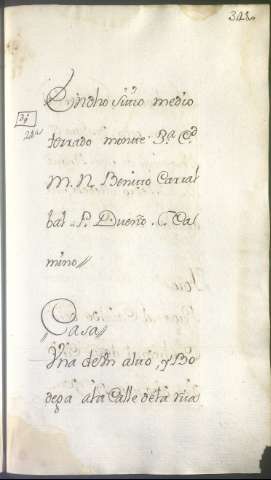 En dho sitio medio
ferrado monte 3ª Cᵈ
M. N. Benito Carral
bal P. Dueño T. Ca
mino//
Casa//
Vna de un alto, y Bo
dega a la Calle de la rua